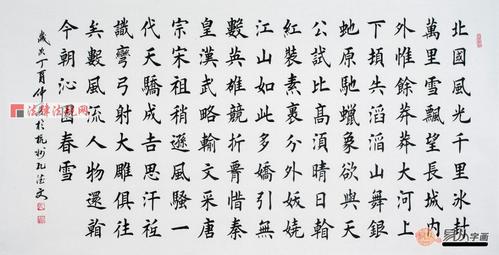 北國風光千里冰封
萬里雪飄望長城內
外惟餘莽莽大河上
下頓失滔滔山舞銀
蛇原馳蠟象欲與天
公試比高須晴日看
紅裝素裹分外妖嬈
江山如此多嬌引無
數英雄競折腰惜秦
皇漢武略輸文采唐
宗宋祖稍遜風騷一
代天驕成吉思汗祗
識彎弓射大雕俱往
矣數風流人物還看
今朝沁園春雪
歲次丁酉仲於杭州
字画